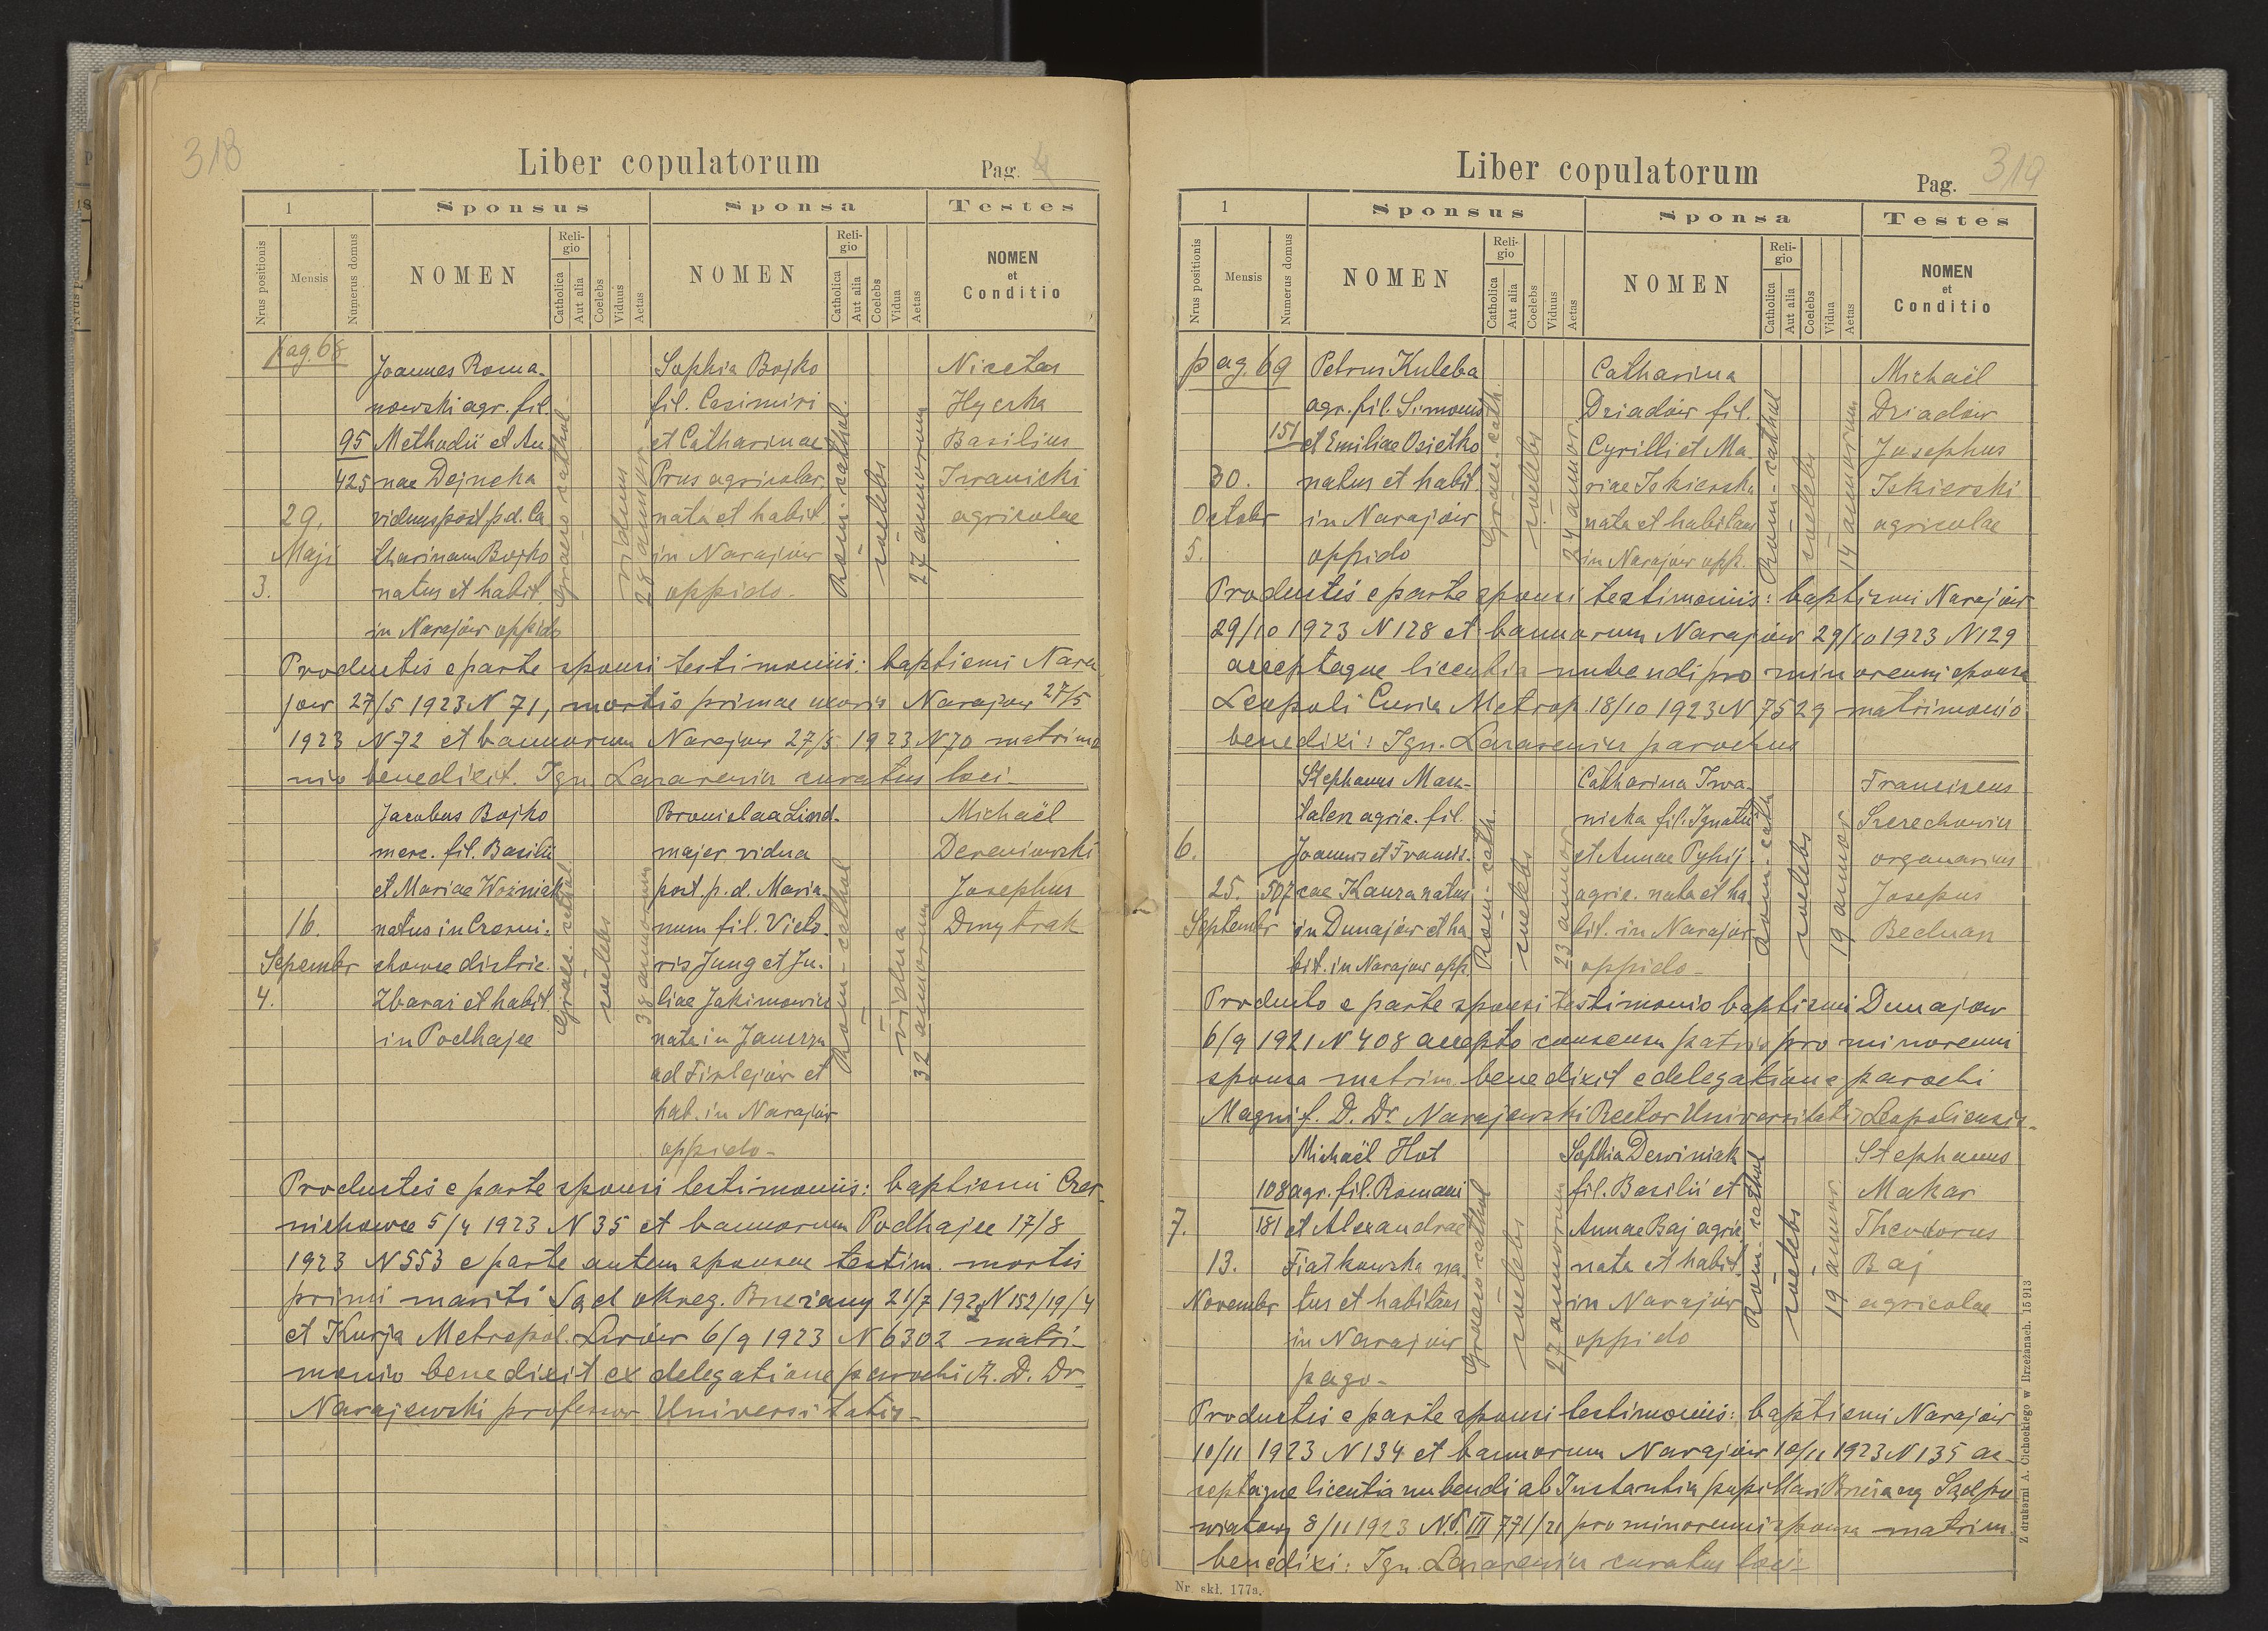 318
Liber copulatorum
Pag. 4
1
Sponsus
Sponsa
Testes
Nrus positionis
Mensis
Numerus domus
NOMEN
Religio
Catholica
Aut alia
Coelebs
Viduus
Aetas
NOMEN
Religio
Catholica
Aut alia
Coelebs
Vidua
Aetas
NOMEN
et
Conditio
pag. 68
3.
29.
Maji
95
425
Joannes Roma-
nowski agr. fil.
Methodii et An-
nae Dejneka
viduus post p. d. Ca
tharinam Bojko
natus et habit.
in Narajów oppido
Graeco-cathol.
viduus
28 annor.
Sophia Bojko
fil. Casimiri
et Catharinae
Prus agricolar.
nata et habit
in Narajów
oppido.
Rom.-cathol.
coelebs
27 annorum
Nicetas
Hycska
Basilius
Iwanicki
agricolae
Productis e parte sponsi testimoniis: baptismi Nara
jow 27/5 1923 N 71, mortis primae uxoris Narajow 27/5
1923 N 72 et bannorum Narajow 27/5 1923 N 70 matrimo
nio benedixit. Ign. Lazarewicz curatus loci-
4.
16.
Sepembr
Jacobus Bojko
merc. fil. Basilii
et Mariae Woźniak
natus in Czerni-
chowce distric.
Zbaraż et habit.
in Podhajce
Graec.-cathol
coelebs
38 annorum
Bronislaa Lind-
majer vidua
post p. d. Maria-
num fil. Victo-
ris Jung et Ju-
liae Jakimowicz
nata in Janczyn
ad Firlejów et
hab. in Narajów
oppido-
Rom.-cathol
vidua
32 annorum
Michaël
Dereniowski
Josephus
Dmytrak
Productis e parte sponsi testimoniis: baptismi Czer-
nichowce 5/4 1923 N 35 et bannorum Podhajce 17/8
1923 N 553 e parte autem sponsae testim. mortis
primi mariti Sąd okreg. Brzeżany 21/7 1922 N 152/19/4
et Kurja Metropol. Lwów 6/9 1923 N 6302 matri-
monio benedixit ex delegatione parochi R. D. Dr
Narajewski professor Universitatis-
319
Liber copulatorum
Pag.
1
Sponsus
Sponsa
Testes
Nrus positionis
Mensis
Numerus domus
NOMEN
Religio
Catholica
Aut alia
Coelebs
Viduus
Aetas
NOMEN
Religio
Catholica
Aut alia
Coelebs
Vidua
Aetas
NOMEN
et
Conditio
pag. 69
5.
30.
Octobr
151
Petrus Kuleba
agr. fil. Simonis
et Emiliae Osietko
natus et habit.
in Narajów
oppido
Graec.-cath.
coelebs
24 annor.
Catharina
Dziadów fil.
Cyrilli et Ma-
riae Iskierska
nata et habitans
in Narajów opp.
Rom.-cathol
coelebs
14 annorum
Michaël
Dziadów
Josephus
Iskierski
agricolae
Productis e parte sponsi testimoniis: baptismi Narajow
29/10 1923 N 128 et bannorum Narajow 29/10 1923 N 129
acceptaque licentia nubendi pro minorenni sponsa
Leopoli Curia Metrop. 18/10 1923 N 7529 matrimonio
benedixi: Ign. Lazarewicz parochus
6.
25.
Septembr
507
Stephanus Mar-
talen agric. fil.
Joannis et Francis-
cae Kauza natus
in Dunajów et ha
bit. in Narajow opp.
Rom.-cath.
coelebs
23 annor
Catharina Iwa-
nicka fil. Ignatii
et Annae Pyhij
agric. nata et ha
bit. in Narajow
oppido-
Rom.-cath
coelebs
19 annor
Franciscus
Szerechowicz
organarius
Josepus
Bednan
Producto e parte sponsi testimonio baptismi Dunajow
6/9 1921 N 408 accepto consensu patris pro minorenni
sponsa matrim. benedixit e delegatione parochi
Magnif. D. Dr. Narajewski Rector Universitatis Leopoliensis-
7.
13.
Novembr
108
181
Michaël Hot
agr. fil. Romani
et Alexandrae
Fiałkowska na-
tus et habitans
in Narajów
pago-
Graeco-cathol
coelebs
27 annorum
Sophia Dewiniak
fil. Basilii et
Annae Baj agric.
nata et habit.
in Narajów
oppido
Rom.-cathol
coelebs
19 annor.
Stephanus
Makar
Theodorus
Baj
agricolae
Productis e parte sponsi testimoniis: baptismi Narajow
10/11 1923 N 134 et bannorum Narajów 10/11 1923 N 135 ac-
ceptaque licentia nubendi ab Instantia pupillari Brzeżany Sąd po
wiatowy 8/11 1923 N. P. III 771/21 pro minorenni sponsa matrim.
benedixi: Ign. Lazarewicz curatus loci-
Nr. skł. 177a.
Z drukarni A. Cichockiego w Brzeżanach. 15913